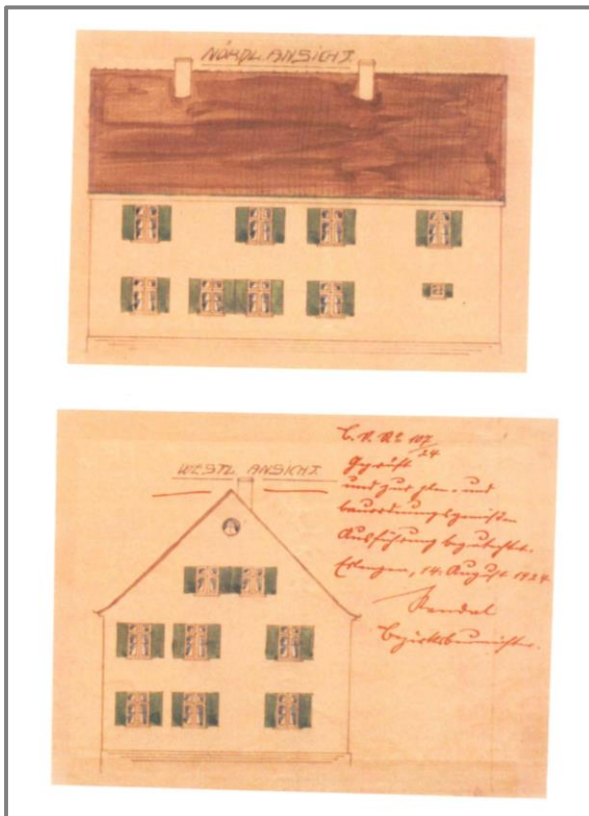 NÖRDL. ANSICHT.
WESTL. ANSICHT.
B. V. Nº 107/24
Geprüft
und zur plan- und
bauordnungsgemäßen
Ausführung begutachtet.
Erlangen, 14. August 1924
Bezirksbaumeister.